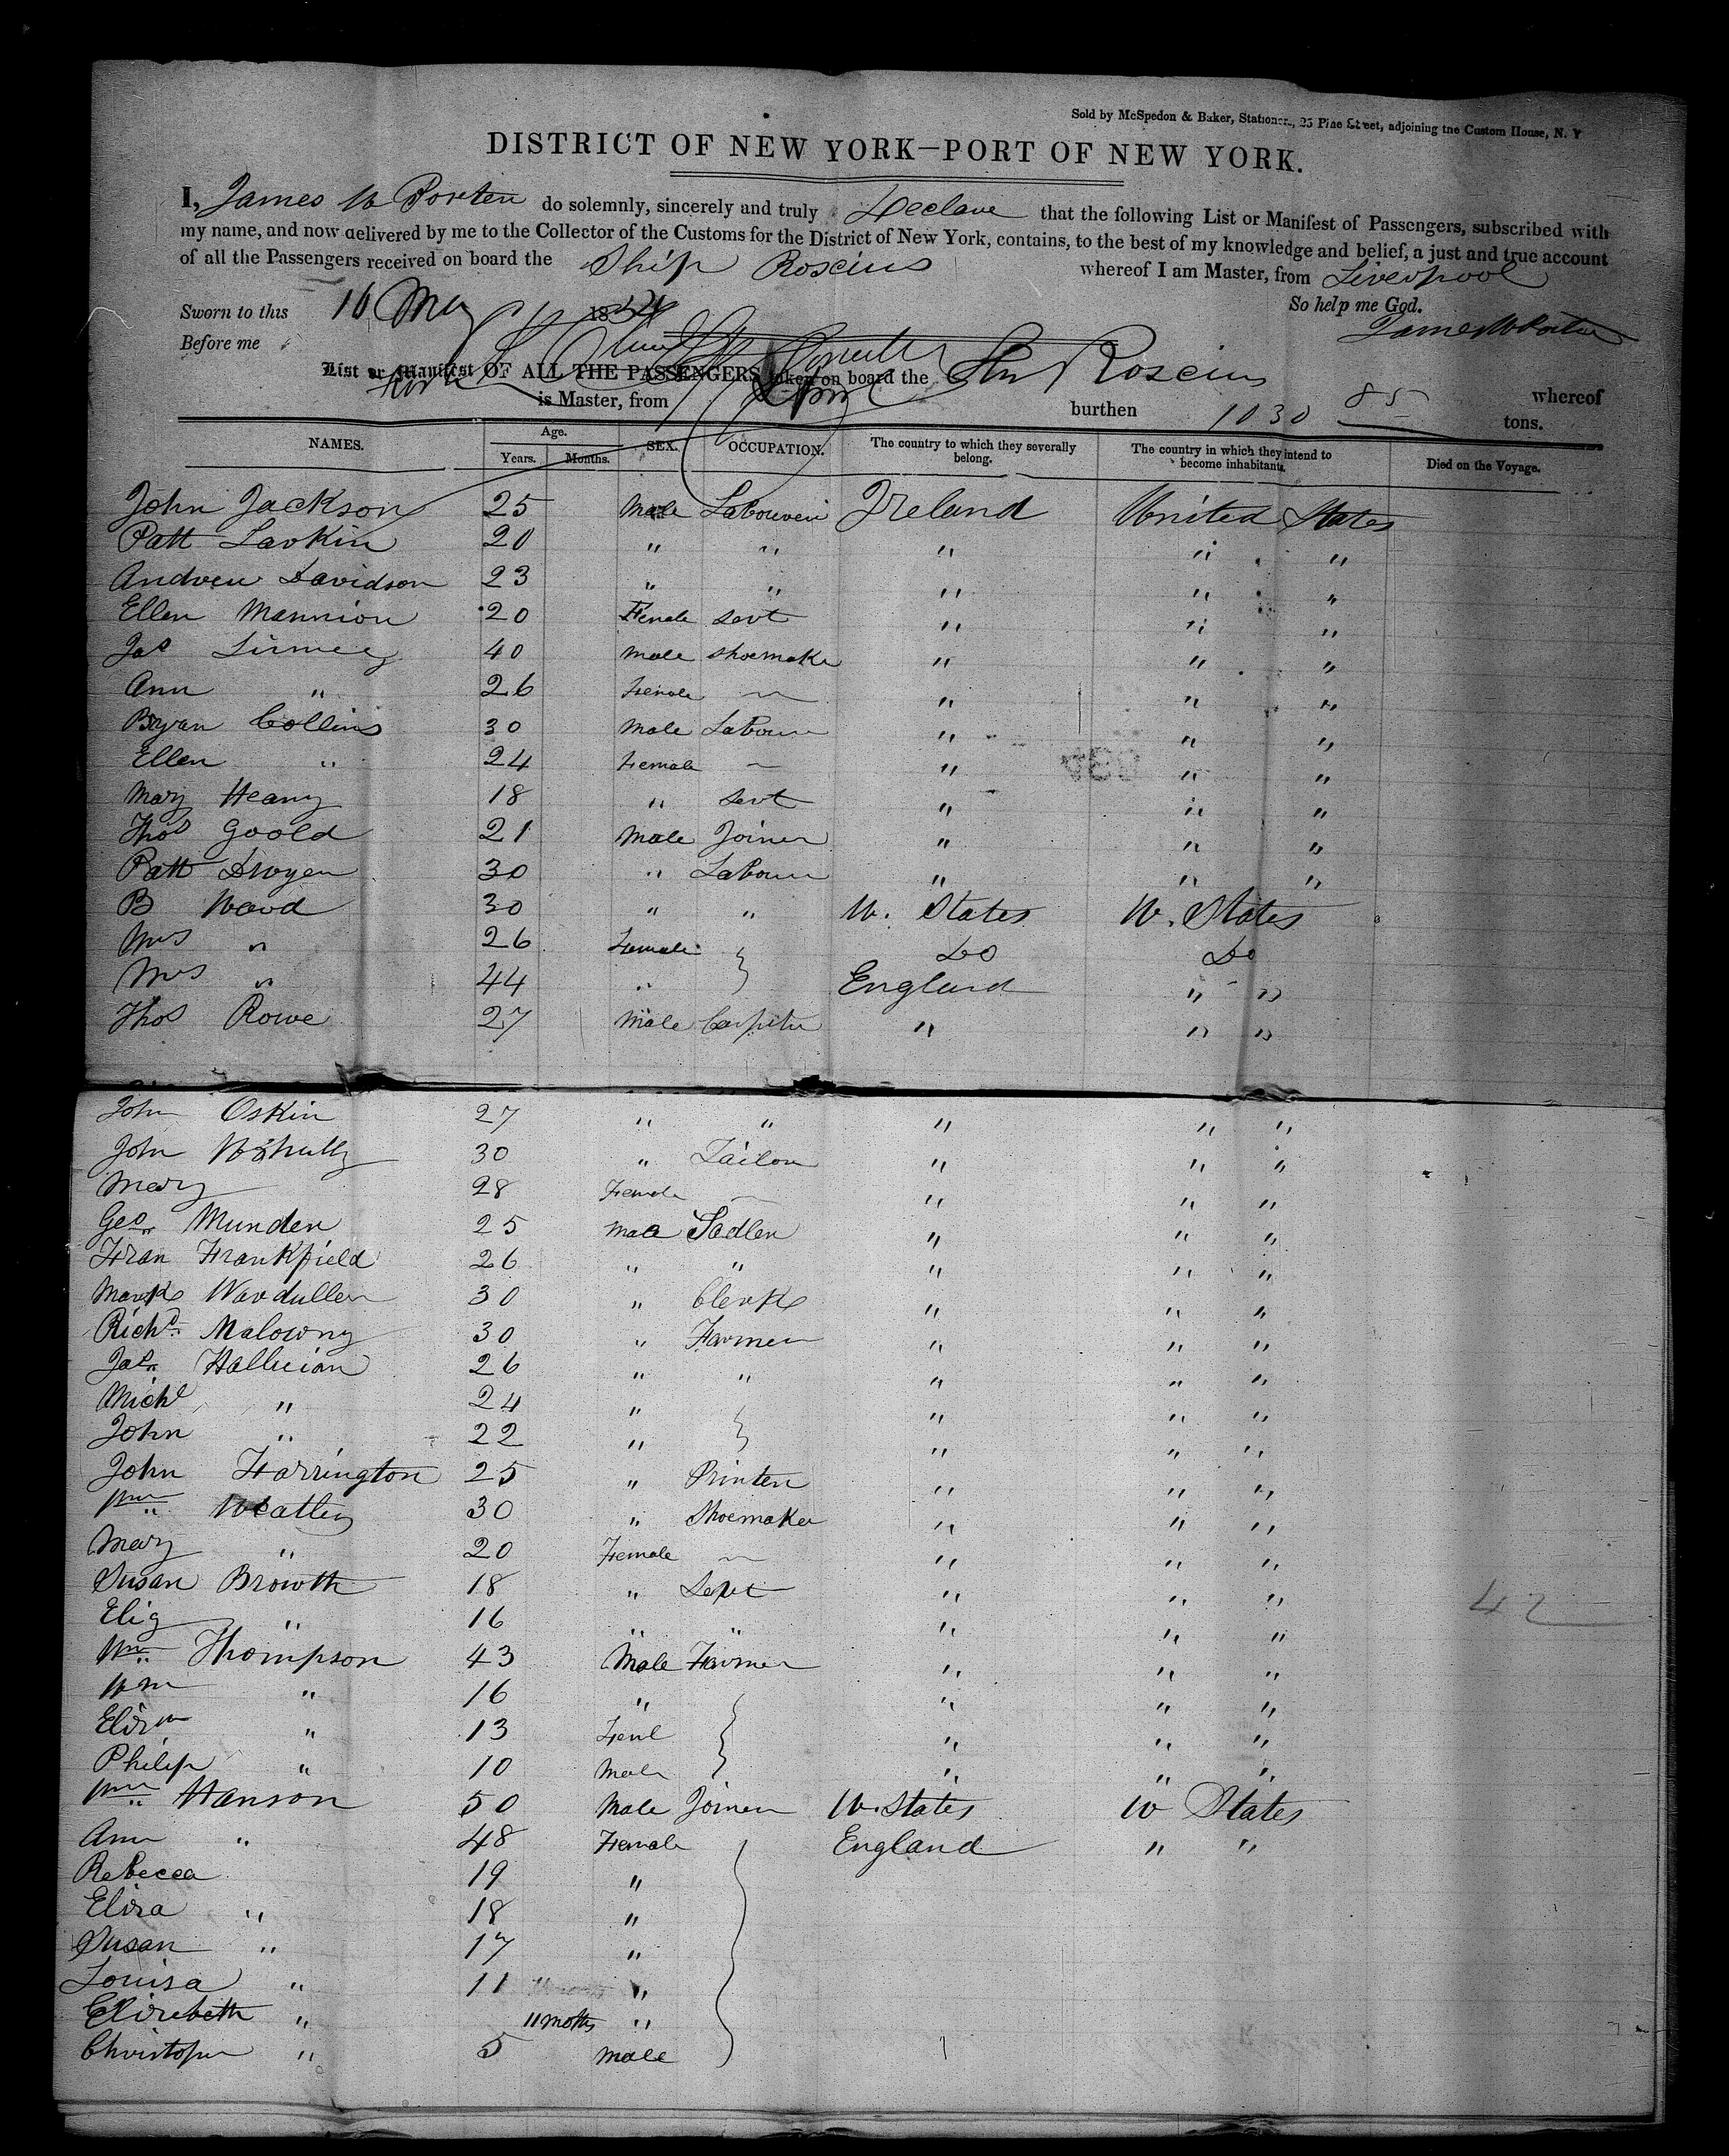 Sold by McSpedon & Baker, Stationers, 25 Pine Street, adjoining the Custom House, N. Y
DISTRICT OF NEW YORK—PORT OF NEW YORK.
I, James W Porter do solemnly, sincerely and truly Declare that the following List or Manifest of Passengers, subscribed with
my name, and now delivered by me to the Collector of the Customs for the District of New York, contains, to the best of my knowledge and belief, a just and true account
of all the Passengers received on board the Ship Roscius whereof I am Master, from Liverpool
So help me God.
Sworn to this 16 May 185
James W Porter
Before me
List or Manifest OF ALL THE PASSENGERS taken on board the Roscius whereof
is Master, from burthen 1030 85 tons.
NAMES. Age. Years. Months. SEX. OCCUPATION. The country to which they severally belong. The country in which they intend to become inhabitants. Died on the Voyage.
John Jackson 25 Male Labourer Ireland United States
Patt Larkin 20 " " " " "
Andrew Davidson 23 " " " " "
Ellen Mannion 20 Female Servt " " "
Jas 40 Male Shoemaker " " "
Ann " 26 Female — " " "
Bryan Collins 30 Male Labour " " "
Ellen " 24 Female — " " "
Mary Heany 18 " Servt " " "
Thos Goold 21 Male Joiner " " "
Patt Dwyer 30 " Labour " " "
B Ward 30 " " U. States U. States
Mrs " 26 Female Do Do
Mrs " 44 " England " "
Thos Rowe 27 Male Carpiter " " "
John Oskin 27 " " " " "
John 30 " Tailor " " "
Mary 28 Female — " " "
Geo Munden 25 Male Sadler " " "
Fran Frankfield 26 " " " " "
Mark Warduller 30 " Clerk " " "
Richd Malowny 30 " Farmer " " "
Jas Halluian 26 " " " " "
Michl " 24 " " " "
John " 22 " " " "
John Farrington 25 " Printer " " "
Wm Weatley 30 " Shoemaker " " "
Mary " 20 Female — " " "
Susan Browth 18 " Servt " " "
42
Eliz " 16 " " " " "
Wm Thompson 43 Male Farmer " " "
Wm " 16 " " " "
Elizth " 13 Feml " " "
Philip " 10 Male " " "
Wm Hanson 50 Male Joiner U. States U States
Ann " 48 Female England " "
Rebecca 19 "
Eliza " 18 "
Susan " 17 "
Louisa " 11 "
Elizebeth " 11 moths "
Christopher " 5 Male